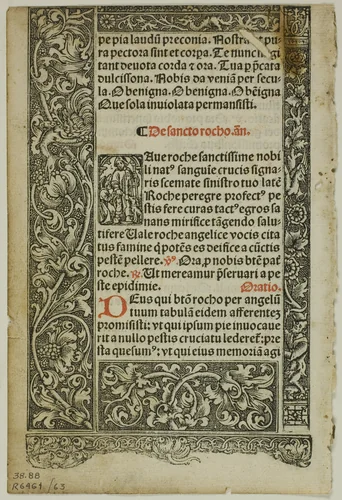 pe pia laudū preconia. Nostra ut pu
ra pectora sint et corpa. Te nunc flagi
tant deuota corda & ora. Tua p̄ p̄cata
dulcissona. Nobis da veniā per secu
la. O benigna. O benigna. O bēigna
Que sola inuiolata permansisti.
¶ De sancto rocho. añ.
Aue roche sanctissime nobi
li natꝰ sanguīe crucis signa
ris scemate sinistro tuo latē
Roche peregre profectꝰ pes
tis fere curas tactꝰ egros sa
nans mirifice tāgendo salu
tifere Uale roche angelice vocis cita
tus famine q̄ potēs es deifice a cūctis
pestē pellere. ℣. Ora p̄ nobis btē pat
roche. ℟. Ut mereamur p̄seruari a pe
ste epidimie. Oratio.
Deus qui btō rocho per angelū
tuum tabulā eidem afferentez
promisisti: vt qui ipsum pie inuocaue
rit a nullo pestis cruciatu lederet: pre
sta quesumꝰ: vt qui eius memoriā agi
38.88
R6461/63